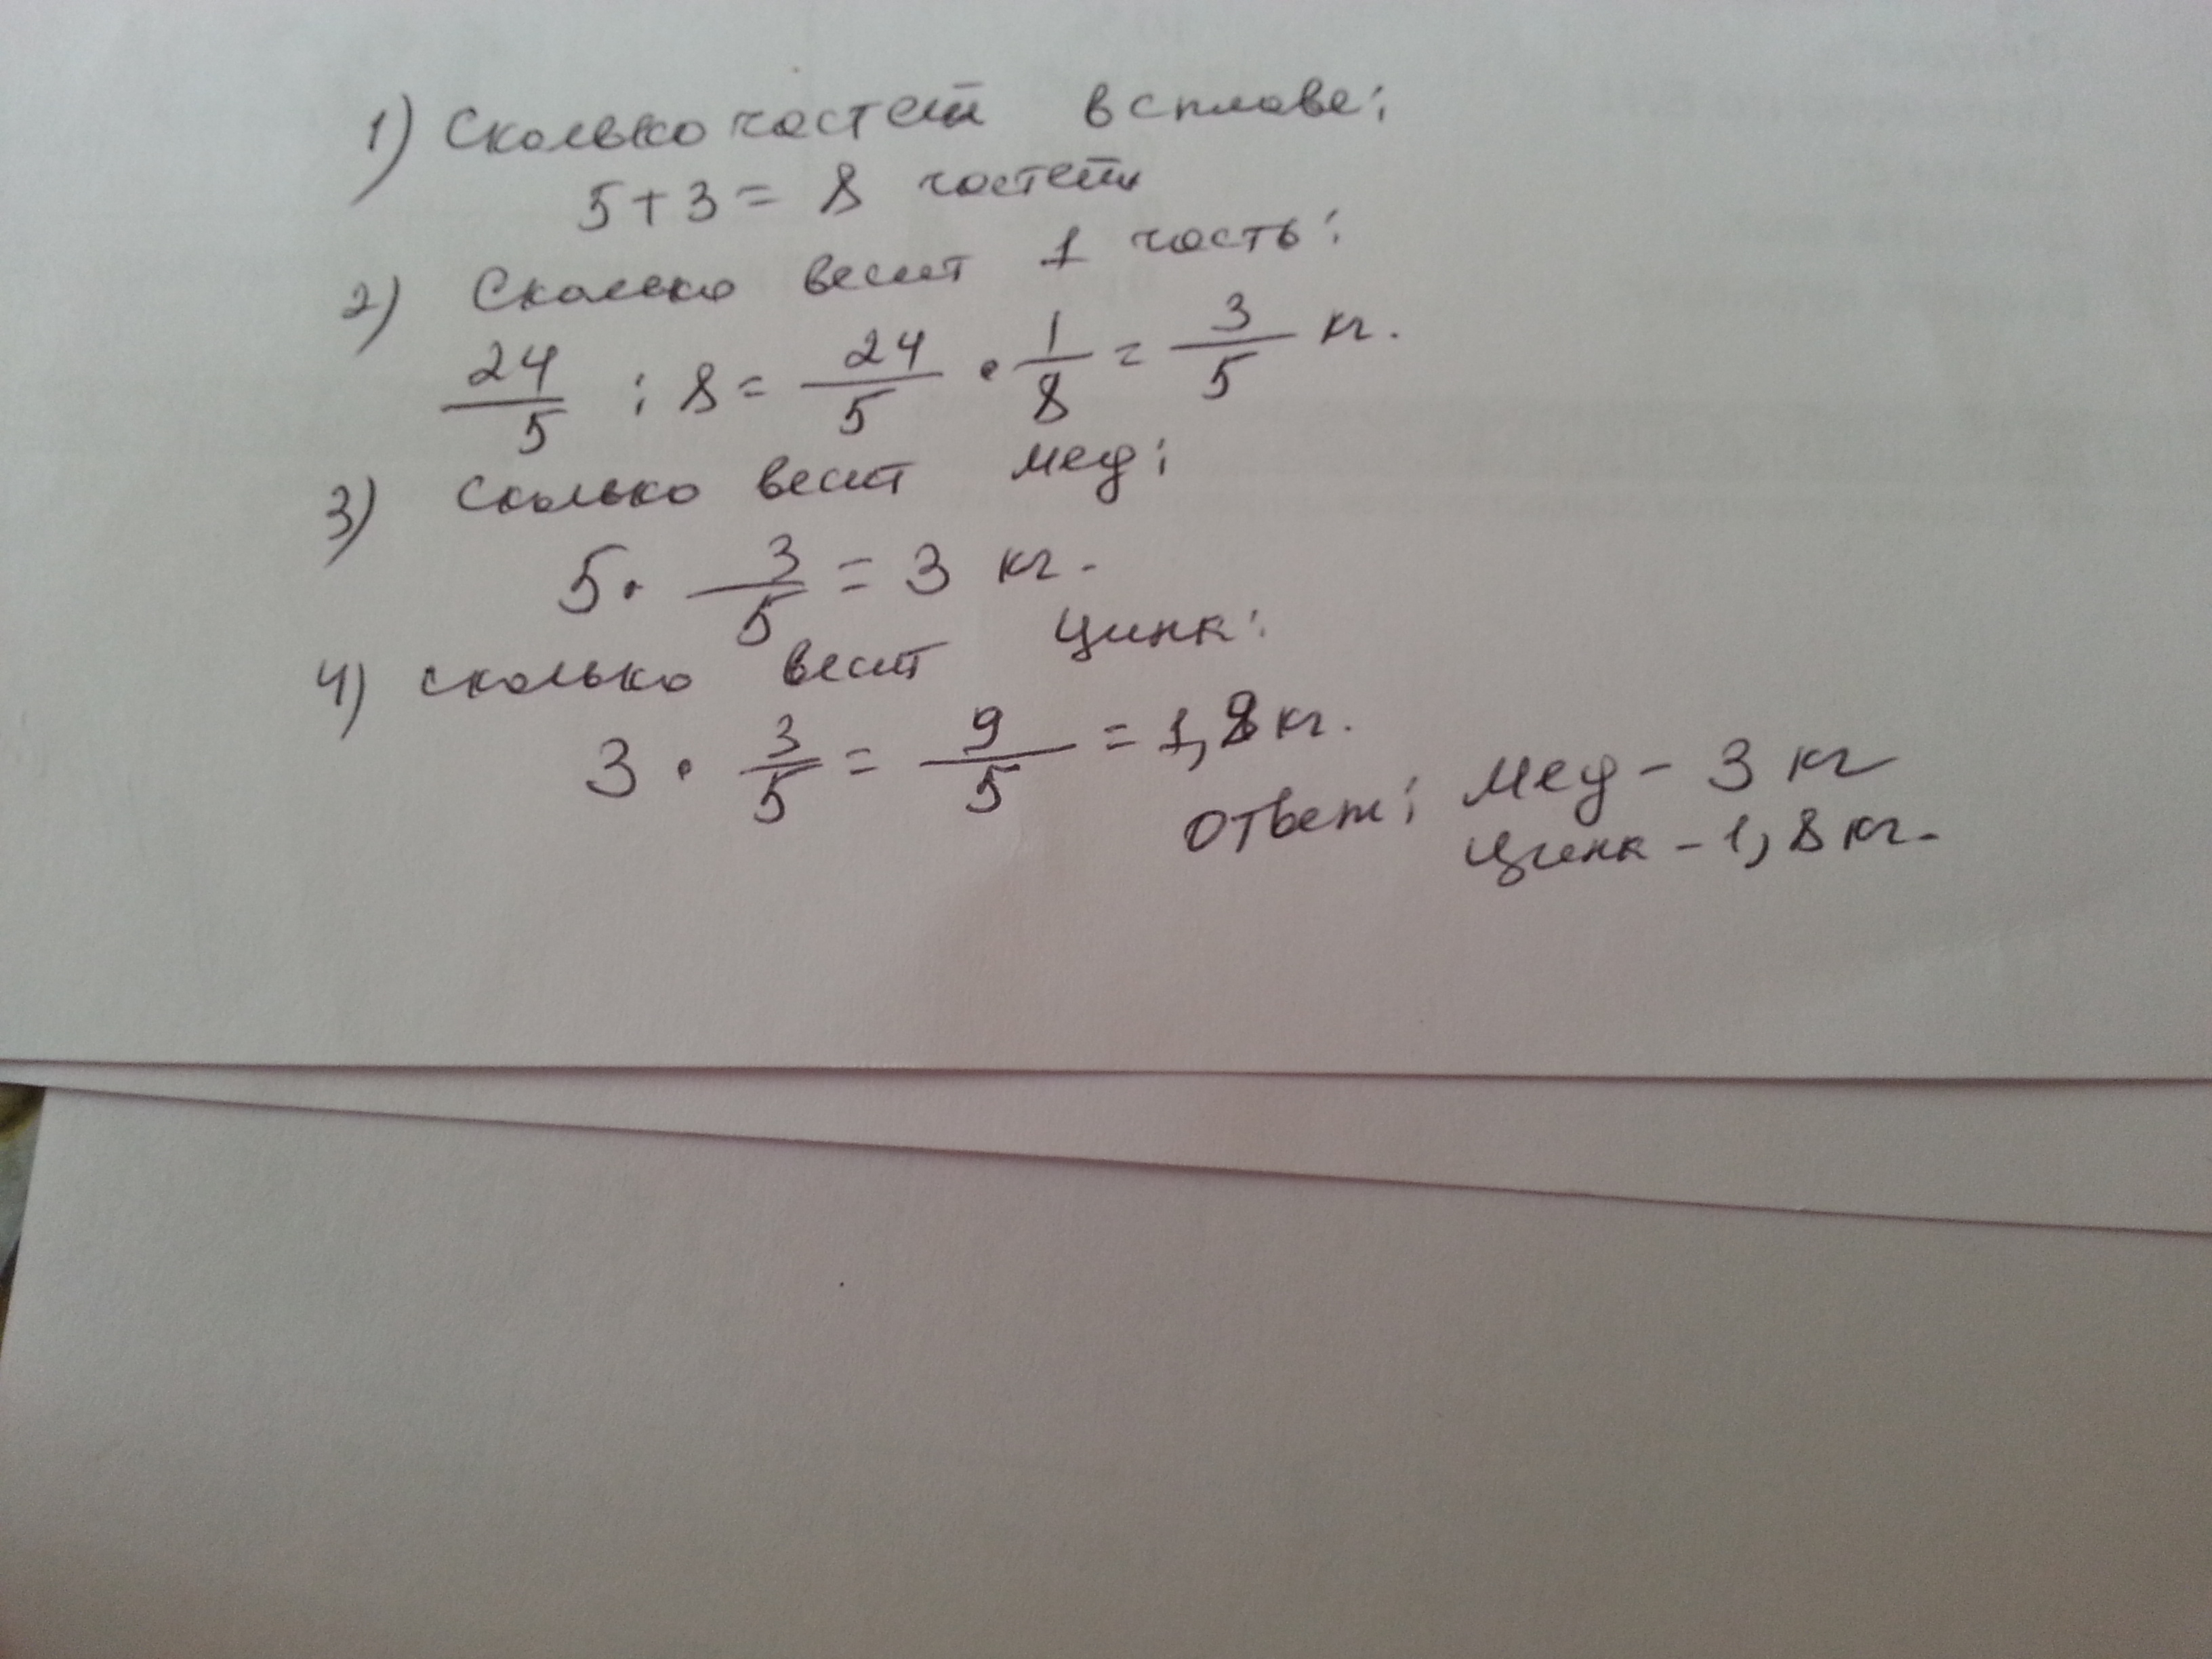 1) Сколько частей в сплаве:
5+3= 8 частей
2) Сколько весит 1 часть:
24/5 : 8 = 24/5 • 1/8 = 3/5 кг.
3) Сколько весит мед:
5 • 3/5 = 3 кг.
4) сколько весит цинк:
3 • 3/5 = 9/5 = 1,8 кг.
ответ: мед - 3 кг
цинк - 1,8 кг.